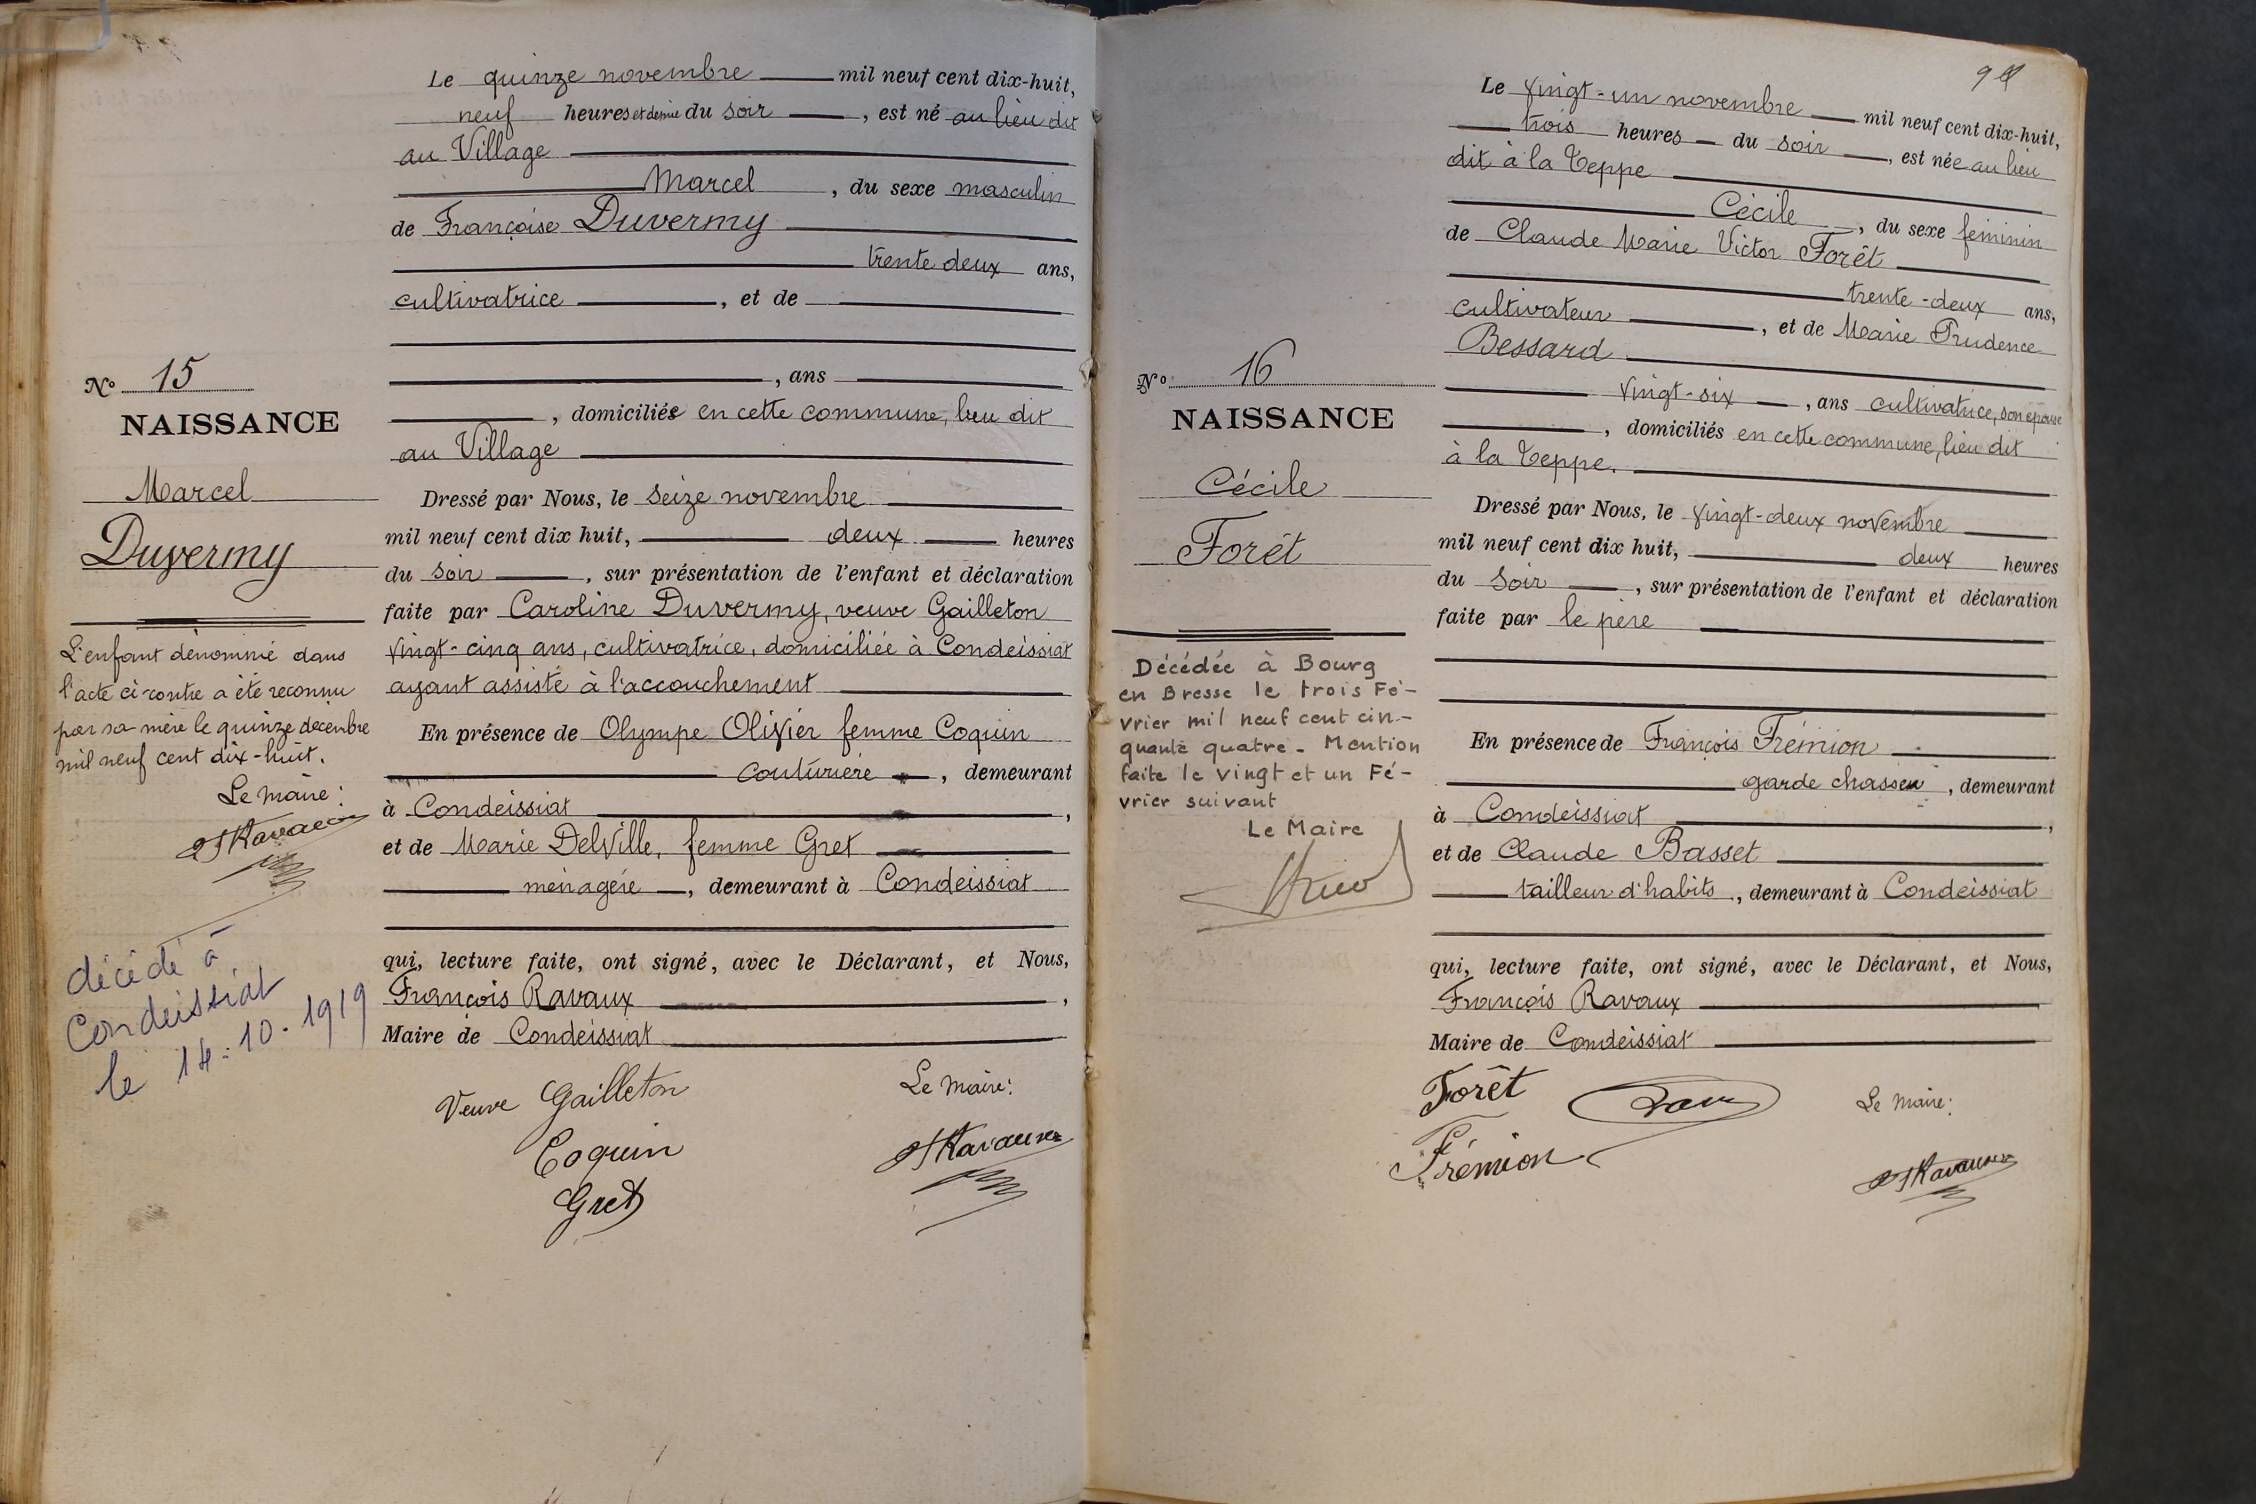 Le quinze novembre mil neuf cent dix-huit,
neuf heures et demie du soir, est né au lieu dit
au Village
Marcel, du sexe masculin
de Françoise Duvermy
trente deux ans,
cultivatrice, et de
, ans
, domiciliée en cette commune, lieu dit
au Village
Dressé par Nous, le seize novembre
mil neuf cent dix huit, deux heures
du soir, sur présentation de l'enfant et déclaration
faite par Caroline Duvermy, veuve Gailleton
vingt-cinq ans, cultivatrice, domiciliée à Condeissiat
ayant assisté à l'accouchement
En présence de Olympe Olivier femme Coquin
couturière, demeurant
à Condeissiat,
et de Marie Delville, femme Gret
ménagère, demeurant à Condeissiat
qui, lecture faite, ont signé, avec le Déclarant, et Nous,
François Ravaux,
Maire de Condeissiat
Veuve Gailleton
Le Maire:
Coquin
Ravaux
Gret
N° 15
NAISSANCE
Marcel
Duvermy
L'enfant dénommé dans
l'acte ci-contre a été reconnu
par sa mère le quinze décembre
mil neuf cent dix-huit.
Le Maire:
Ravaux
décédé à
Condeissiat
le 14-10-1919
9
Le vingt-un novembre mil neuf cent dix-huit,
trois heures du soir, est née au lieu
dit à la Teppe
Cécile, du sexe féminin
de Claude Marie Victor Forêt
trente-deux ans,
cultivateur, et de Marie Prudence
Bessard
vingt-six, ans cultivatrice, son épouse
, domiciliés en cette commune, lieu dit
à la Teppe.
Dressé par Nous, le vingt-deux novembre
mil neuf cent dix huit, deux heures
du soir, sur présentation de l'enfant et déclaration
faite par le père
En présence de François Frémion
garde chasse, demeurant
à Condeissiat,
et de Claude Basset
tailleur d'habits, demeurant à Condeissiat
qui, lecture faite, ont signé, avec le Déclarant, et Nous,
François Ravaux
Maire de Condeissiat
Forêt
Le Maire:
Frémion
Ravaux
N° 16
NAISSANCE
Cécile
Forêt
Décédée à Bourg
en Bresse le trois Fé-
vrier mil neuf cent cin-
quante quatre - Mention
faite le vingt et un Fé-
vrier suivant
Le Maire